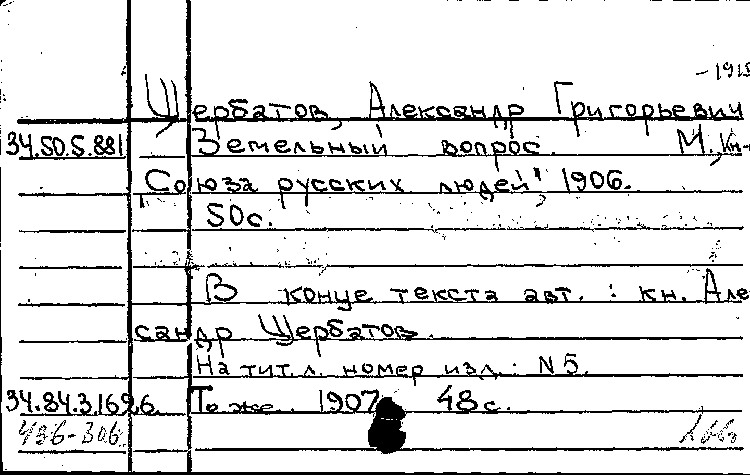 -1915
Щербатов, Александр Григорьевич
34.50.5.881 Земельный вопрос. М., Кн-
Союза русских людей", 1906.
50с.
В конце текста авт. : кн. Але
сандр Щербатов.
На тит. л. номер изд.: N 5.
34.84.3.1696. То же. 1907. 48 с.
436-306